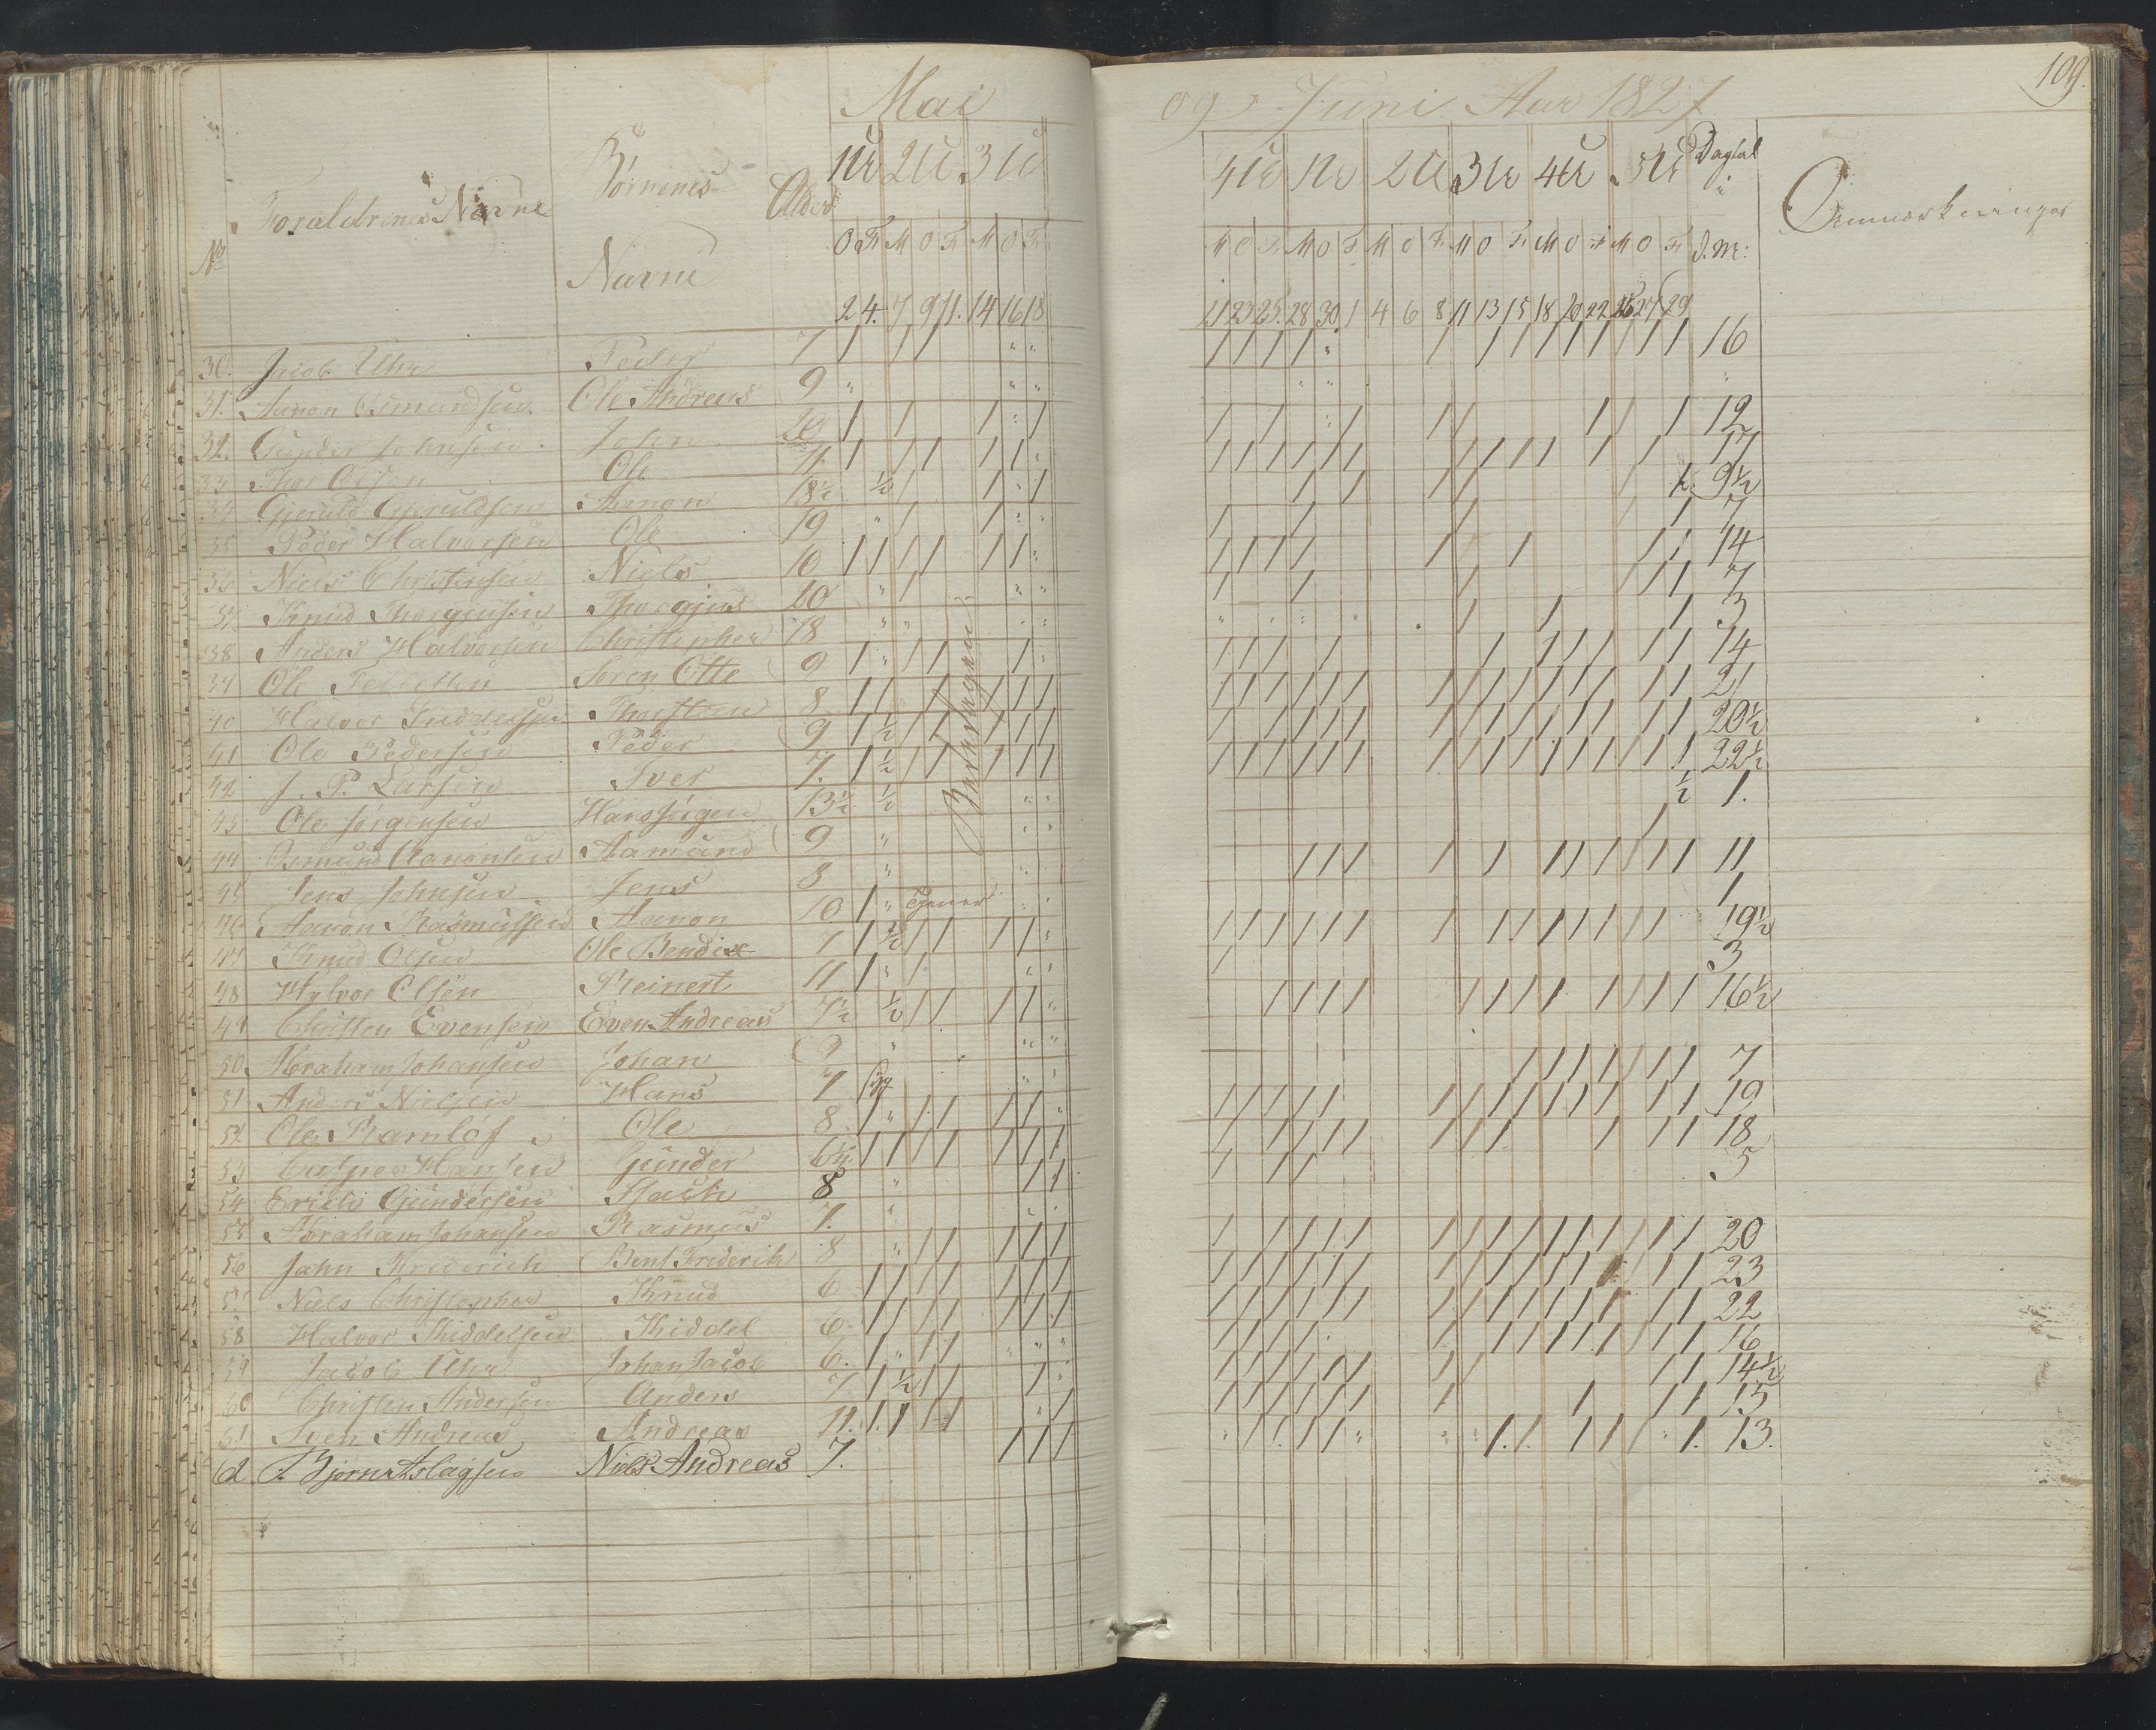 Mai
og Juni Aar 1827
109.
No
Forældrenes Navne
Börnenes
Navne
Alder
1U 2U 3U
4U 1U 2U 3U 4U 5U Dagtal
Anmærkninger
O F M O F M O F
M O F M O F M O F M O F M O F M O F d. M:
2 4 7 9 11 14 16 18
21 23 25 28 30 1 4 6 8 11 13 15 18 20 22 25 27 29
30. Jacob Uhr Peder 7 16
31. Aanon Osmundsen Ole Andreas 9
32. Gunder Johnsen John 12
33 Thor Olsen Ole 11. 17
34 Gjeruld Gjeruldsen Aanon 9½
35 Peder Halvorsen Ole 7
36 Niels Christensen Niels 10 14
37 Knud Thorgjusen Thorgjus 10 7
38 Anders Halvorsen Christopher 3
39 Ole Sören Otte 9 14
40 Halvor Kiddelsen Thorsteen 8 21
41 Ole Pedersen Peder 9 20½
42 J. P. Larsen Iver 7. 22½
43 Ole Jörgensen Hans Jörgen 13½ 1.
44 Osmund Aanonsen Aamund 9
45 Jens Johnsen Jens 8 11
46 Aanon Rasmussen Aanon 10 Tjener 1
47 Knud Olsen Ole Bendix 7 19½
48 Halvor Olsen Reinert 11 3
49 Christen Evensen Even Andreas 7½ 16½
50. Abraham Johansen Johan 9
51 Anders Nielsen Hans 7 7
52 Ole Ramlof Ole 8 19
53 Casper Hansen Gunder 18
54 Erich Gundersen Isach 8 5
55 Abraham Johansen Rasmus 7.
56 John Frederich Bent Frederik 8 20
57 Niels Christopher Knud 6 23
58 Halvor Kiddelsen Kiddel 6 22
59 Jacob Uhr Johan Jacob 6. 16
60 Christen Andersen Anders 7 14½
61 Sven Andreas Andreas 11. 15
62 Björn Aslagsen Niels Andreas 7. 13.